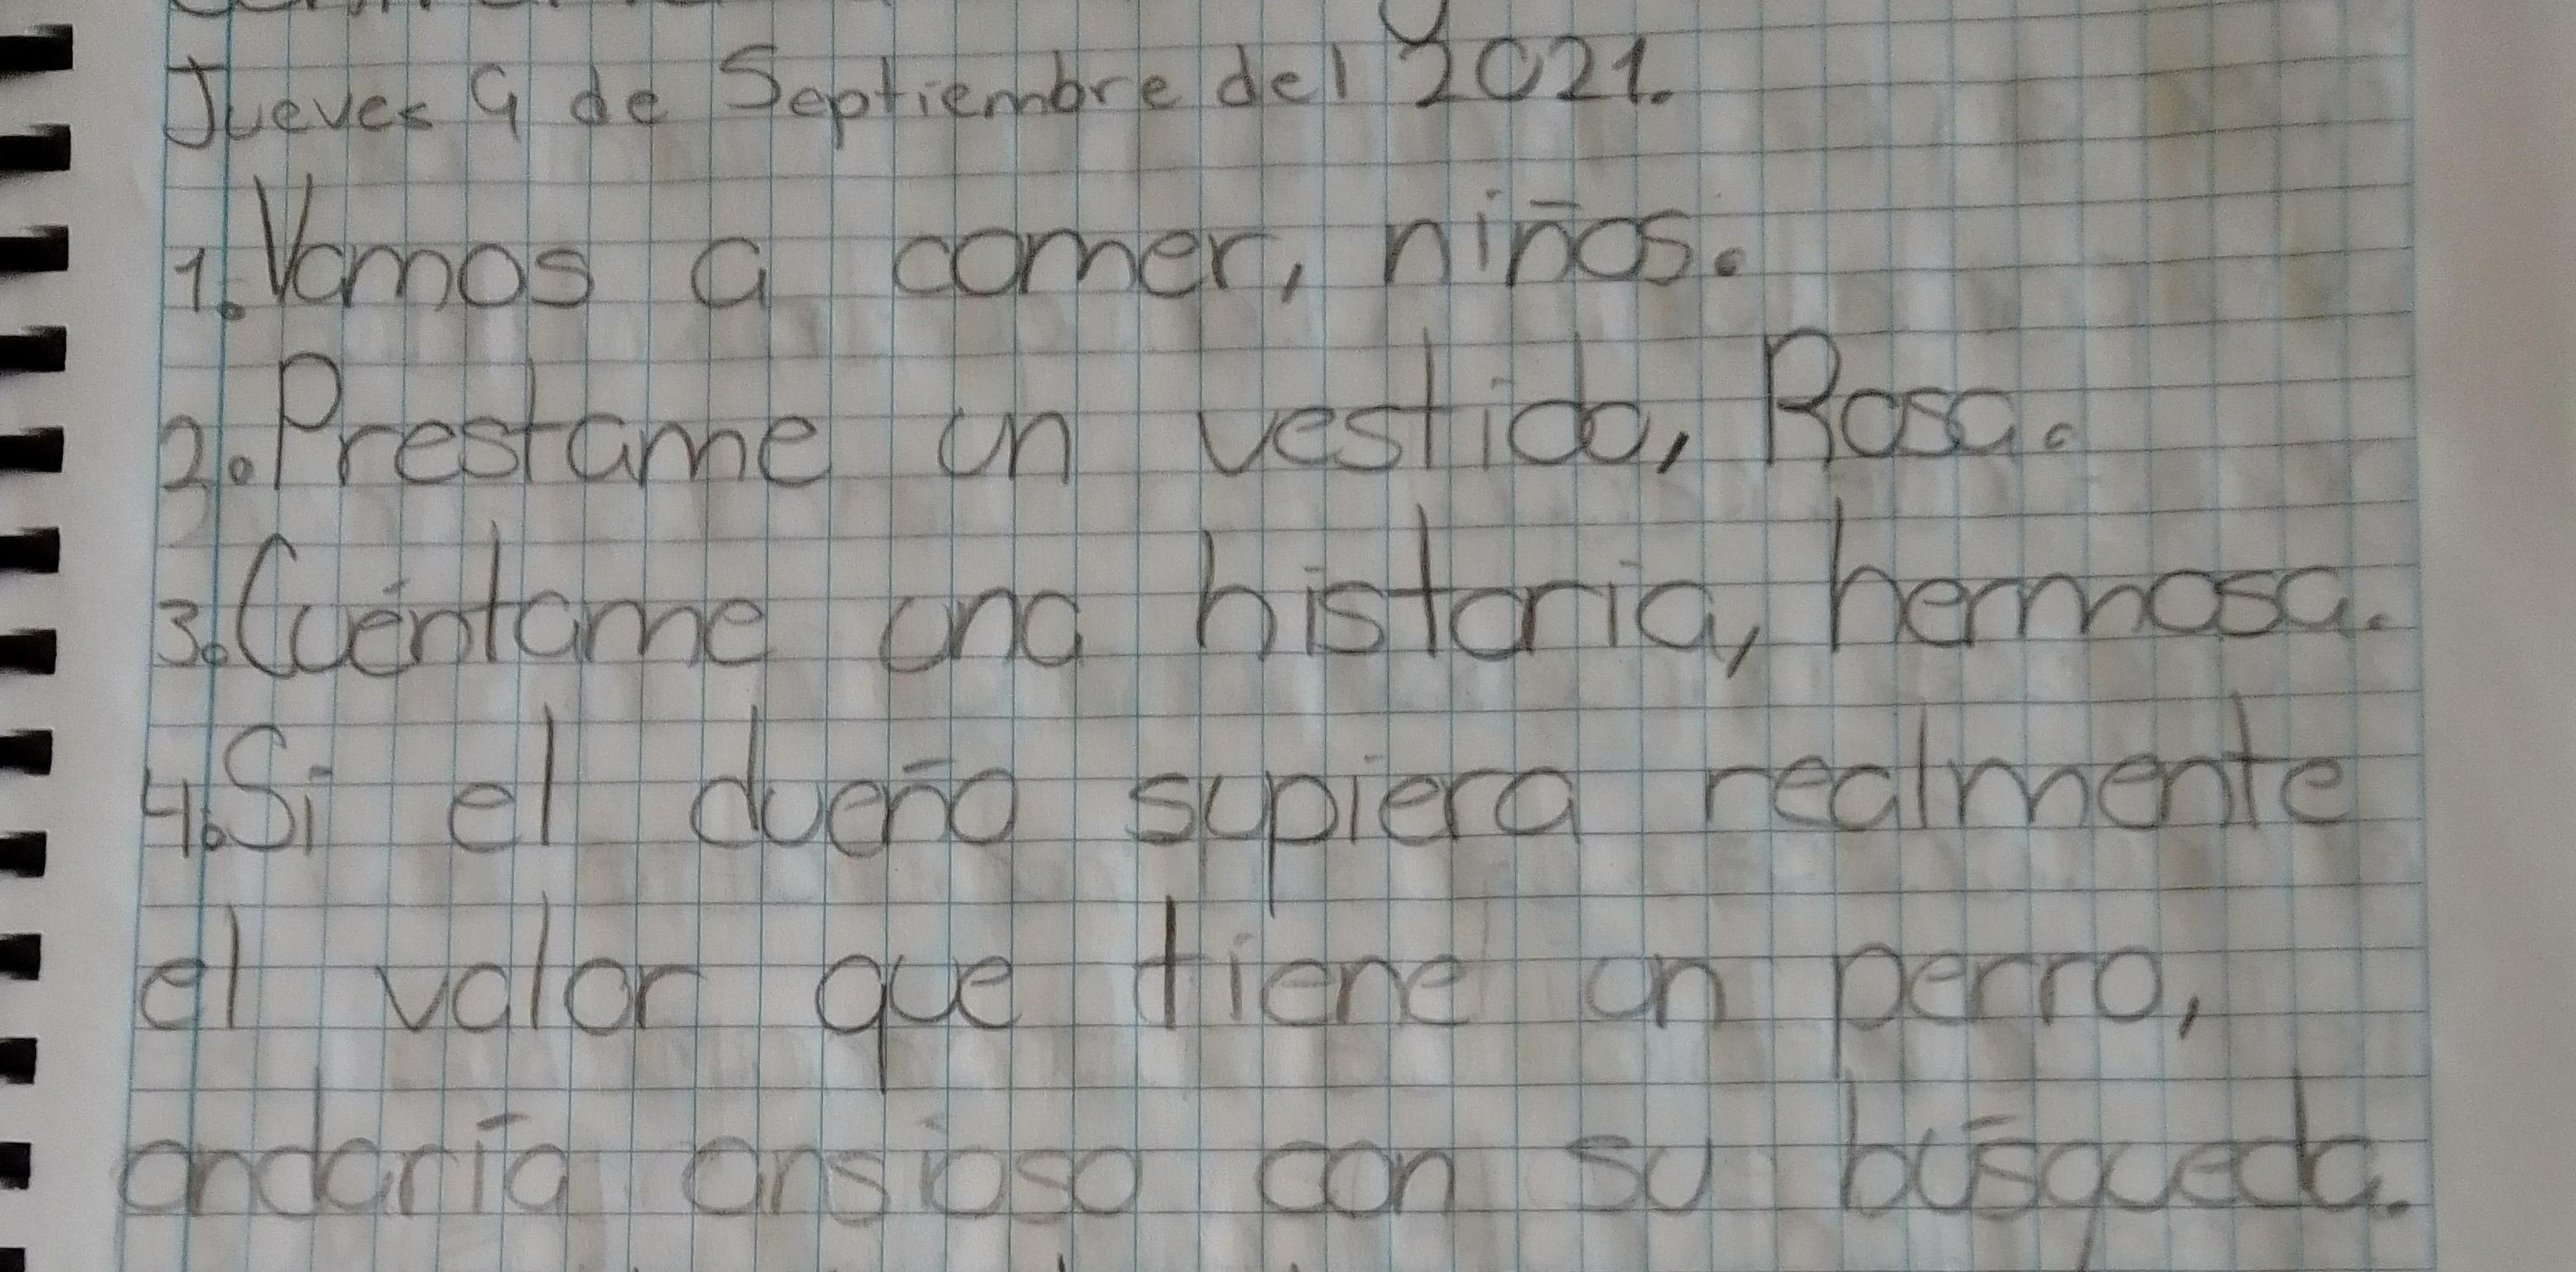 Jueves 9 de Septiembre del 2021.
1. Vamos a comer, niños.
2. Prestame un vestido, Rosa.
3. Cuéntame una historia, hermosa.
4. Si el dueño supiera realmente
el valor que tiene un perro,
andaría ansioso con su búsqueda.